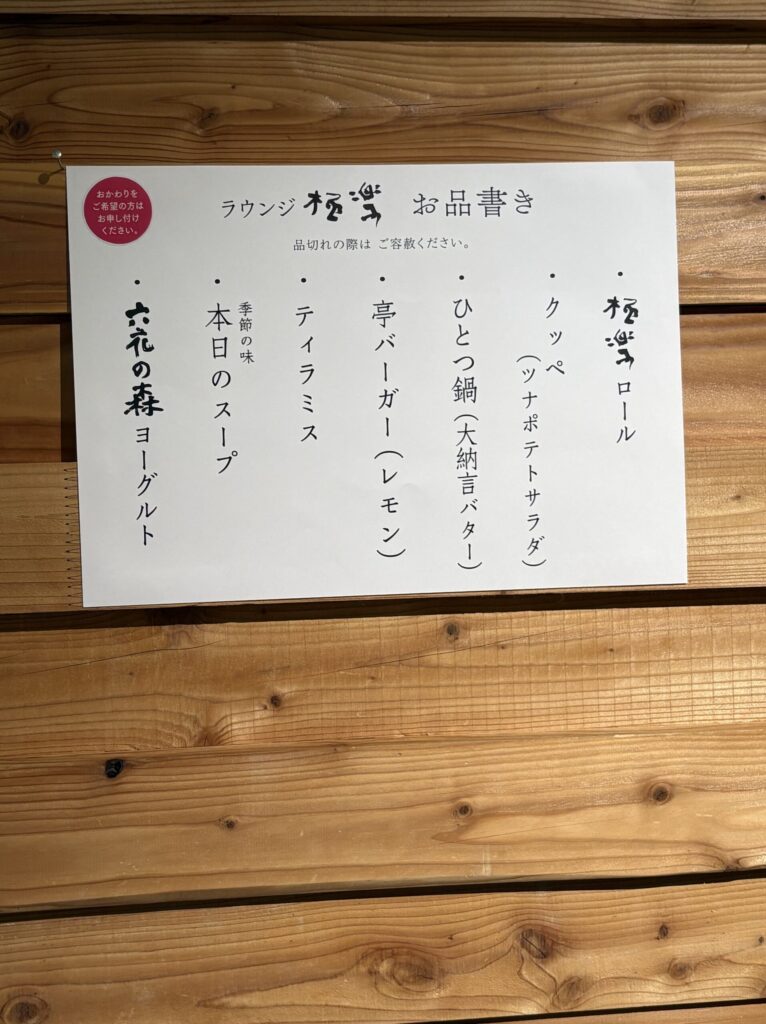 おかわりを
ご希望の方は
お申し付け
ください。
ラウンジ 極楽 お品書き
品切れの際は ご容赦ください。
・極楽ロール
・クッペ
（ツナポテトサラダ）
・ひとつ鍋（大納言バター）
・亭バーガー（レモン）
・ティラミス
季節の味
・本日のスープ
・六花の森ヨーグルト